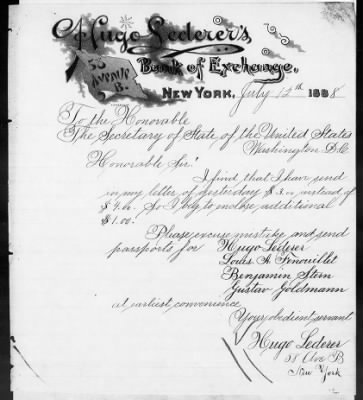 Hugo Lederer's
58
Avenue
B.
Bank of Exchange.
New York, July 12th 1888
To the Honorable
The Secretary of State of the United States
Washington D.C.
Honorable Sir!
I find that I have send
in my letter of yesterday $ 3.00 instead of
$ 4.00. So I beg to enclose additional
$1.00.
Please excuse mistake and send
passports for Hugo Lederer
Louis A. Fenouillet
Benjamin Stern
Gustav Goldmann
at earliest convenience
Your obedient servant
Hugo Lederer
58 Ave B
New York